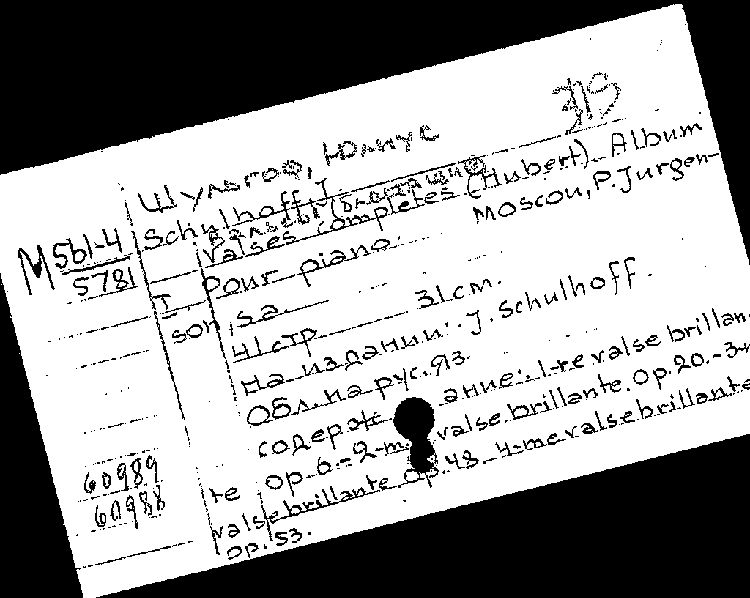 319
Шульгоф, Юлиус
Schulhoff J.
Вальсы
Valses complètes (Hubert). Album
Pour piano. Moscou, P. Jurgen-
son, s.a.
41 стр. 31 cm.
На издании: J. Schulhoff.
Обл. на рус. яз.
Содерж ание: 1-re valse brillan-
te op. 6.-2-m. valse brillante. Op. 20.-3-
valse brillante Op. 48. 4-me valse brillante
Op. 53.
M 561-4
5781
60989
60988